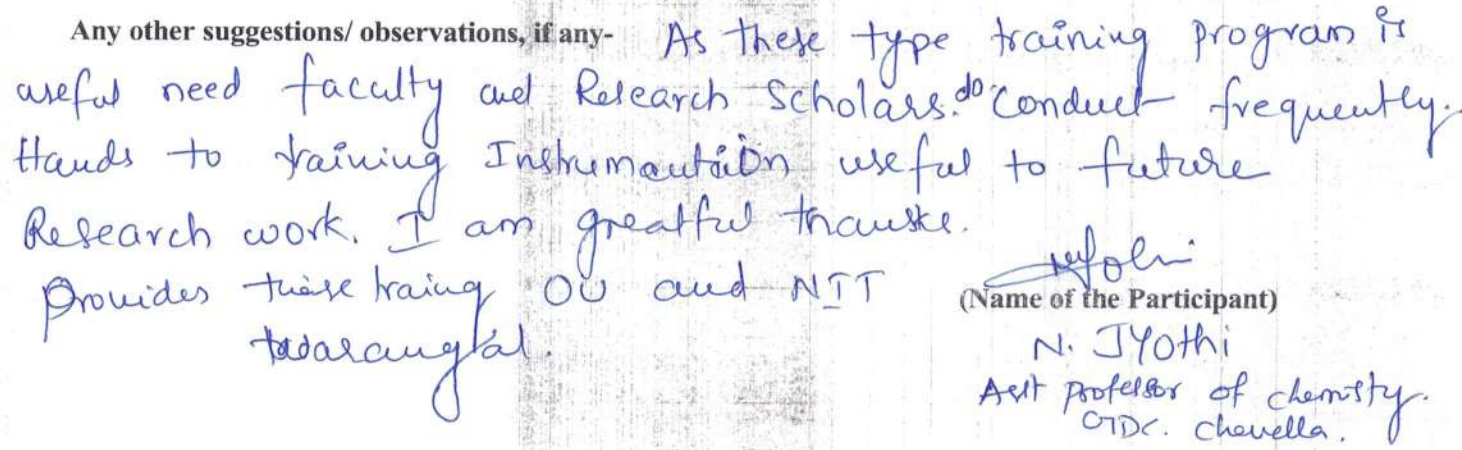 Any other suggestions/ observations, if any- As these type training program is
useful need faculty and Research Scholars. do Conduct frequently.
Hands to training Instrumantation useful to future
Research work. I am greatful thanks.
Provides these traing OU and NIT
warangal.
(Name of the Participant)
N. JYothi
Asst professor of chemisty.
GDC. chevella.